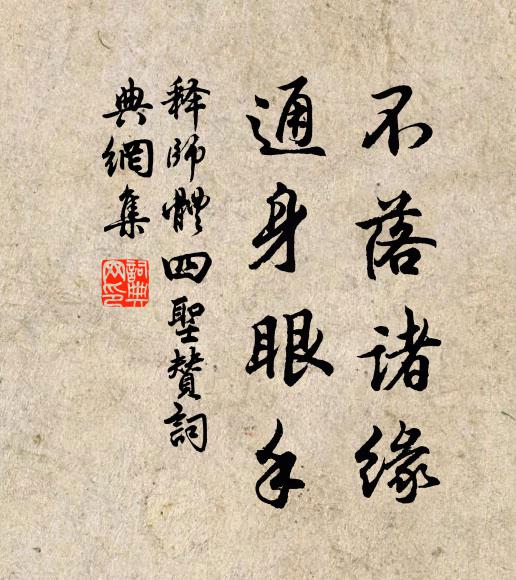 不落諸緣
通身眼手
释師體四聖贊詞
典網集
詞典
网印